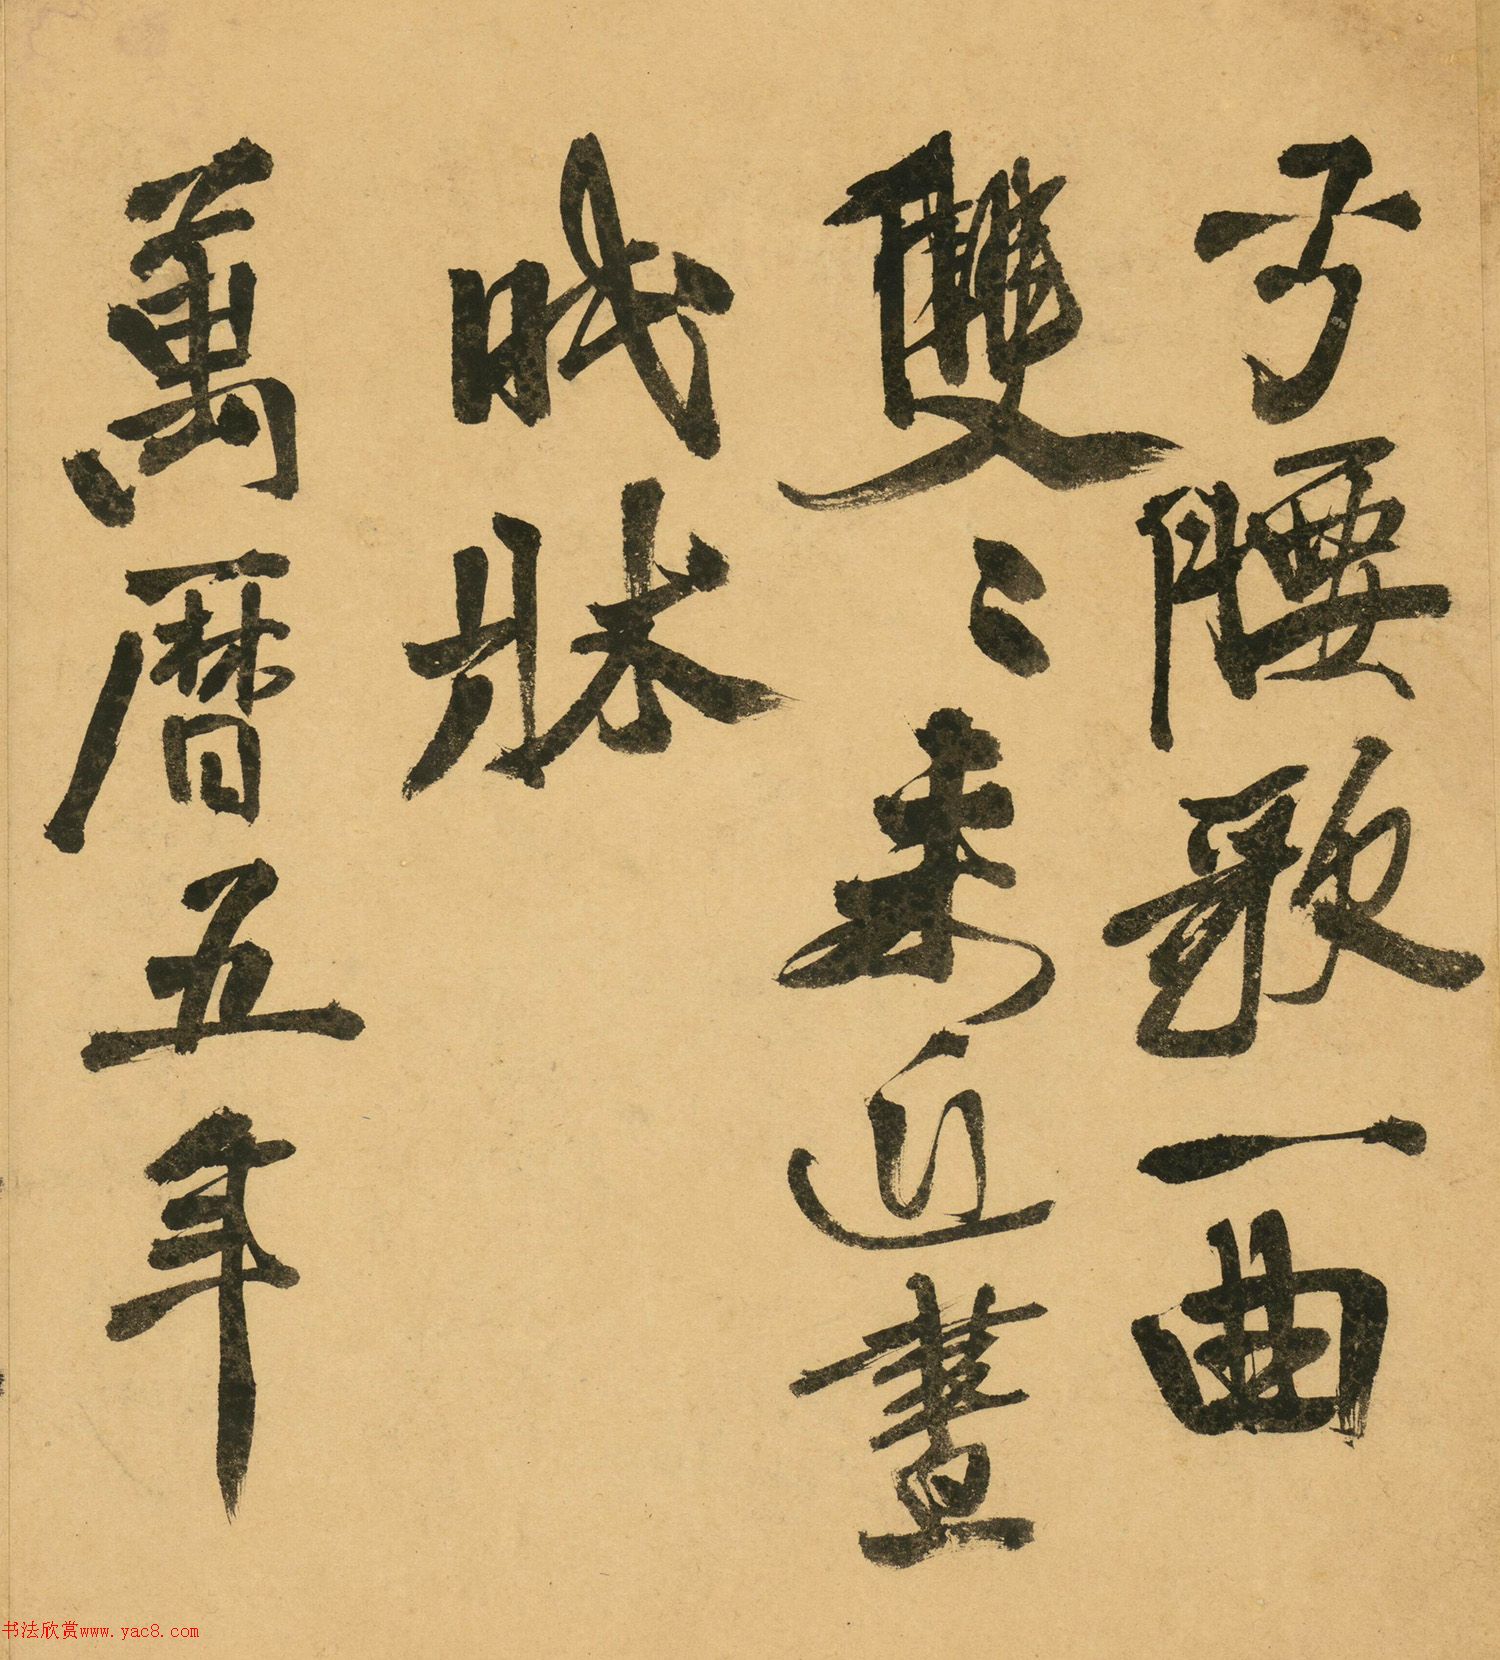 子腰歌一曲
雙〻來近畫
眠牀
萬曆五年
书法欣赏www.yac8.com